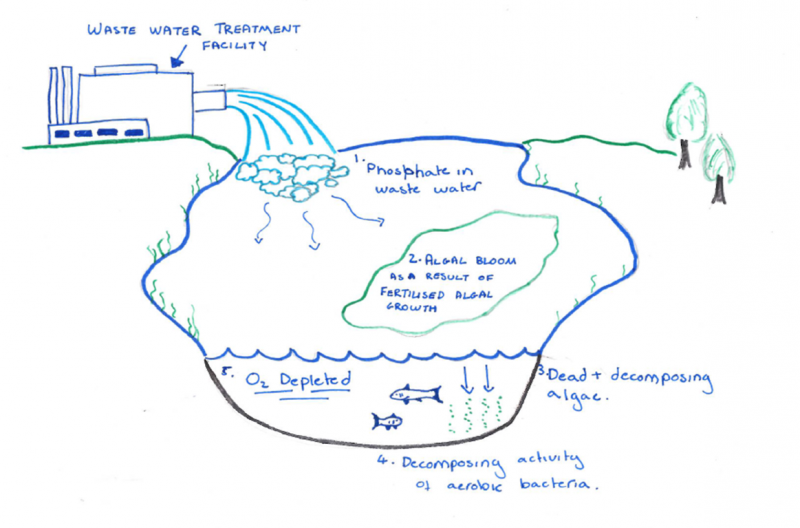 WASTE WATER TREATMENT
FACILITY
1. Phosphate in
waste water
2. ALGAL BLOOM
AS A RESULT OF
FERTILISED ALGAL
GROWTH
3. Dead + decomposing
algae.
5. O2 Depleted
4. Decomposing activity
of aerobic bacteria.